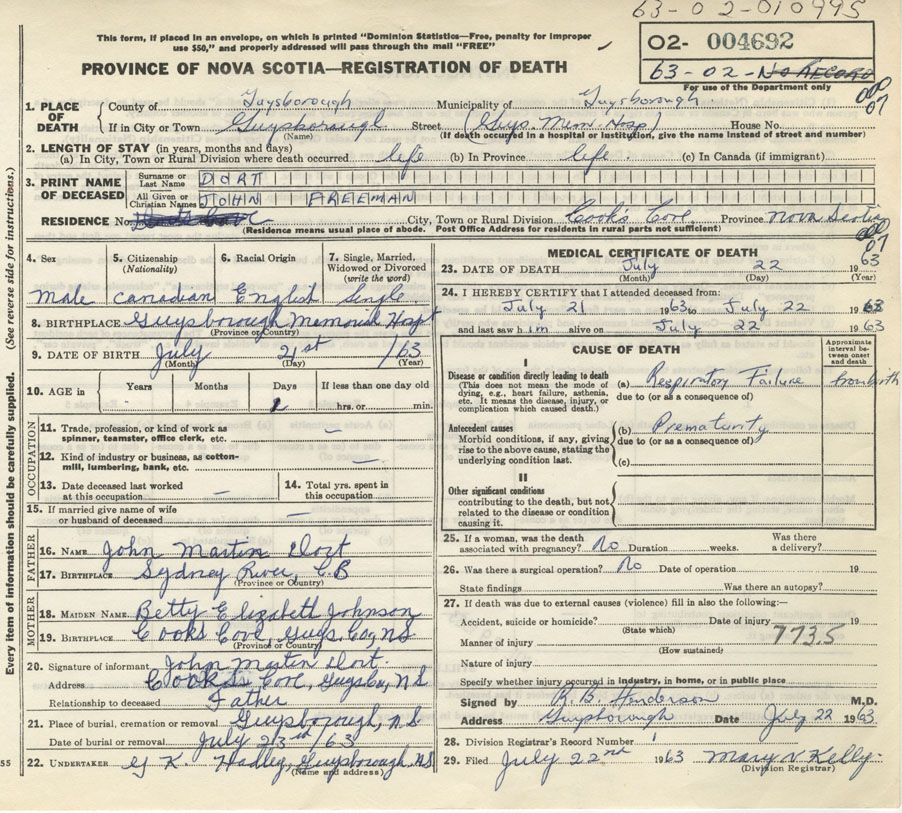 63-02-010995
This form, if placed in an envelope, on which is printed "Dominion Statistics—Free, penalty for improper
use $50," and properly addressed will pass through the mail "FREE"
02- 004692
PROVINCE OF NOVA SCOTIA—REGISTRATION OF DEATH
63-02-No RECORD
For use of the Department only
000
07
1. PLACE OF DEATH
County of Guysborough Municipality of Guysborough
If in City or Town Guysborough Street (Guys. Mem. Hosp) House No.
(Name) (If death occurred in a hospital or institution, give the name instead of street and number)
2. LENGTH OF STAY (in years, months and days)
(a) In City, Town or Rural Division where death occurred life (b) In Province life (c) In Canada (if immigrant)
3. PRINT NAME OF DECEASED
Surname or Last Name DORT
All Given or Christian Names JOHN FREEMAN
RESIDENCE No. City, Town or Rural Division Cooks Cove Province Nova Scotia
(Residence means usual place of abode. Post Office Address for residents in rural parts not sufficient)
000
07
4. Sex
5. Citizenship (Nationality)
6. Racial Origin
7. Single, Married, Widowed or Divorced (write the word)
Male Canadian English Single
8. BIRTHPLACE Guysborough Memorial Hospt
(Province or Country)
9. DATE OF BIRTH July 21st /63
(Month) (Day) (Year)
10. AGE in Years Months Days If less than one day old
1 hrs. or min.
OCCUPATION
11. Trade, profession, or kind of work as spinner, teamster, office clerk, etc. —
12. Kind of industry or business, as cotton-mill, lumbering, bank, etc. —
13. Date deceased last worked at this occupation —
14. Total yrs. spent in this occupation
15. If married give name of wife or husband of deceased —
FATHER
16. NAME John Martin Dort
17. BIRTHPLACE Sydney River, C.B
(Province or Country)
MOTHER
18. MAIDEN NAME Betty Elizabeth Johnson
19. BIRTHPLACE Cooks Cove, Guys. Co, NS
(Province or Country)
20. Signature of informant John Martin Dort.
Address Cooks Cove, Guys Co, N S
Relationship to deceased Father
21. Place of burial, cremation or removal Guysborough, N.S
Date of burial or removal July 23rd /63
22. UNDERTAKER G K. Hadley, Guysborough, N.S
(Name and address)
MEDICAL CERTIFICATE OF DEATH
23. DATE OF DEATH July 22 1963
(Month) (Day) (Year)
24. I HEREBY CERTIFY that I attended deceased from:
July 21 1963 to July 22 1963
and last saw him alive on July 22 1963
CAUSE OF DEATH
Approximate interval between onset and death
I
Disease or condition directly leading to death
(This does not mean the mode of dying, e.g., heart failure, asthenia, etc. It means the disease, injury, or complication which caused death.)
(a) Respiratory Failure from birth
due to (or as a consequence of)
Antecedent causes
Morbid conditions, if any, giving rise to the above cause, stating the underlying condition last.
(b) Prematurity
due to (or as a consequence of)
(c)
II
Other significant conditions
contributing to the death, but not related to the disease or condition causing it.
25. If a woman, was the death associated with pregnancy? No Duration weeks. Was there a delivery?
26. Was there a surgical operation? No Date of operation 19
State findings Was there an autopsy?
27. If death was due to external causes (violence) fill in also the following:—
Accident, suicide or homicide? Date of injury 19
(State which)
7735
Manner of injury
(How sustained)
Nature of injury
Specify whether injury occurred in industry, in home, or in public place
Signed by R. B. Henderson M.D.
Address Guysborough Date July 22 1963
28. Division Registrar's Record Number 1
29. Filed July 22nd 1963 Mary N Kelly
(Division Registrar)
Every item of information should be carefully supplied. (See reverse side for instructions.)
55